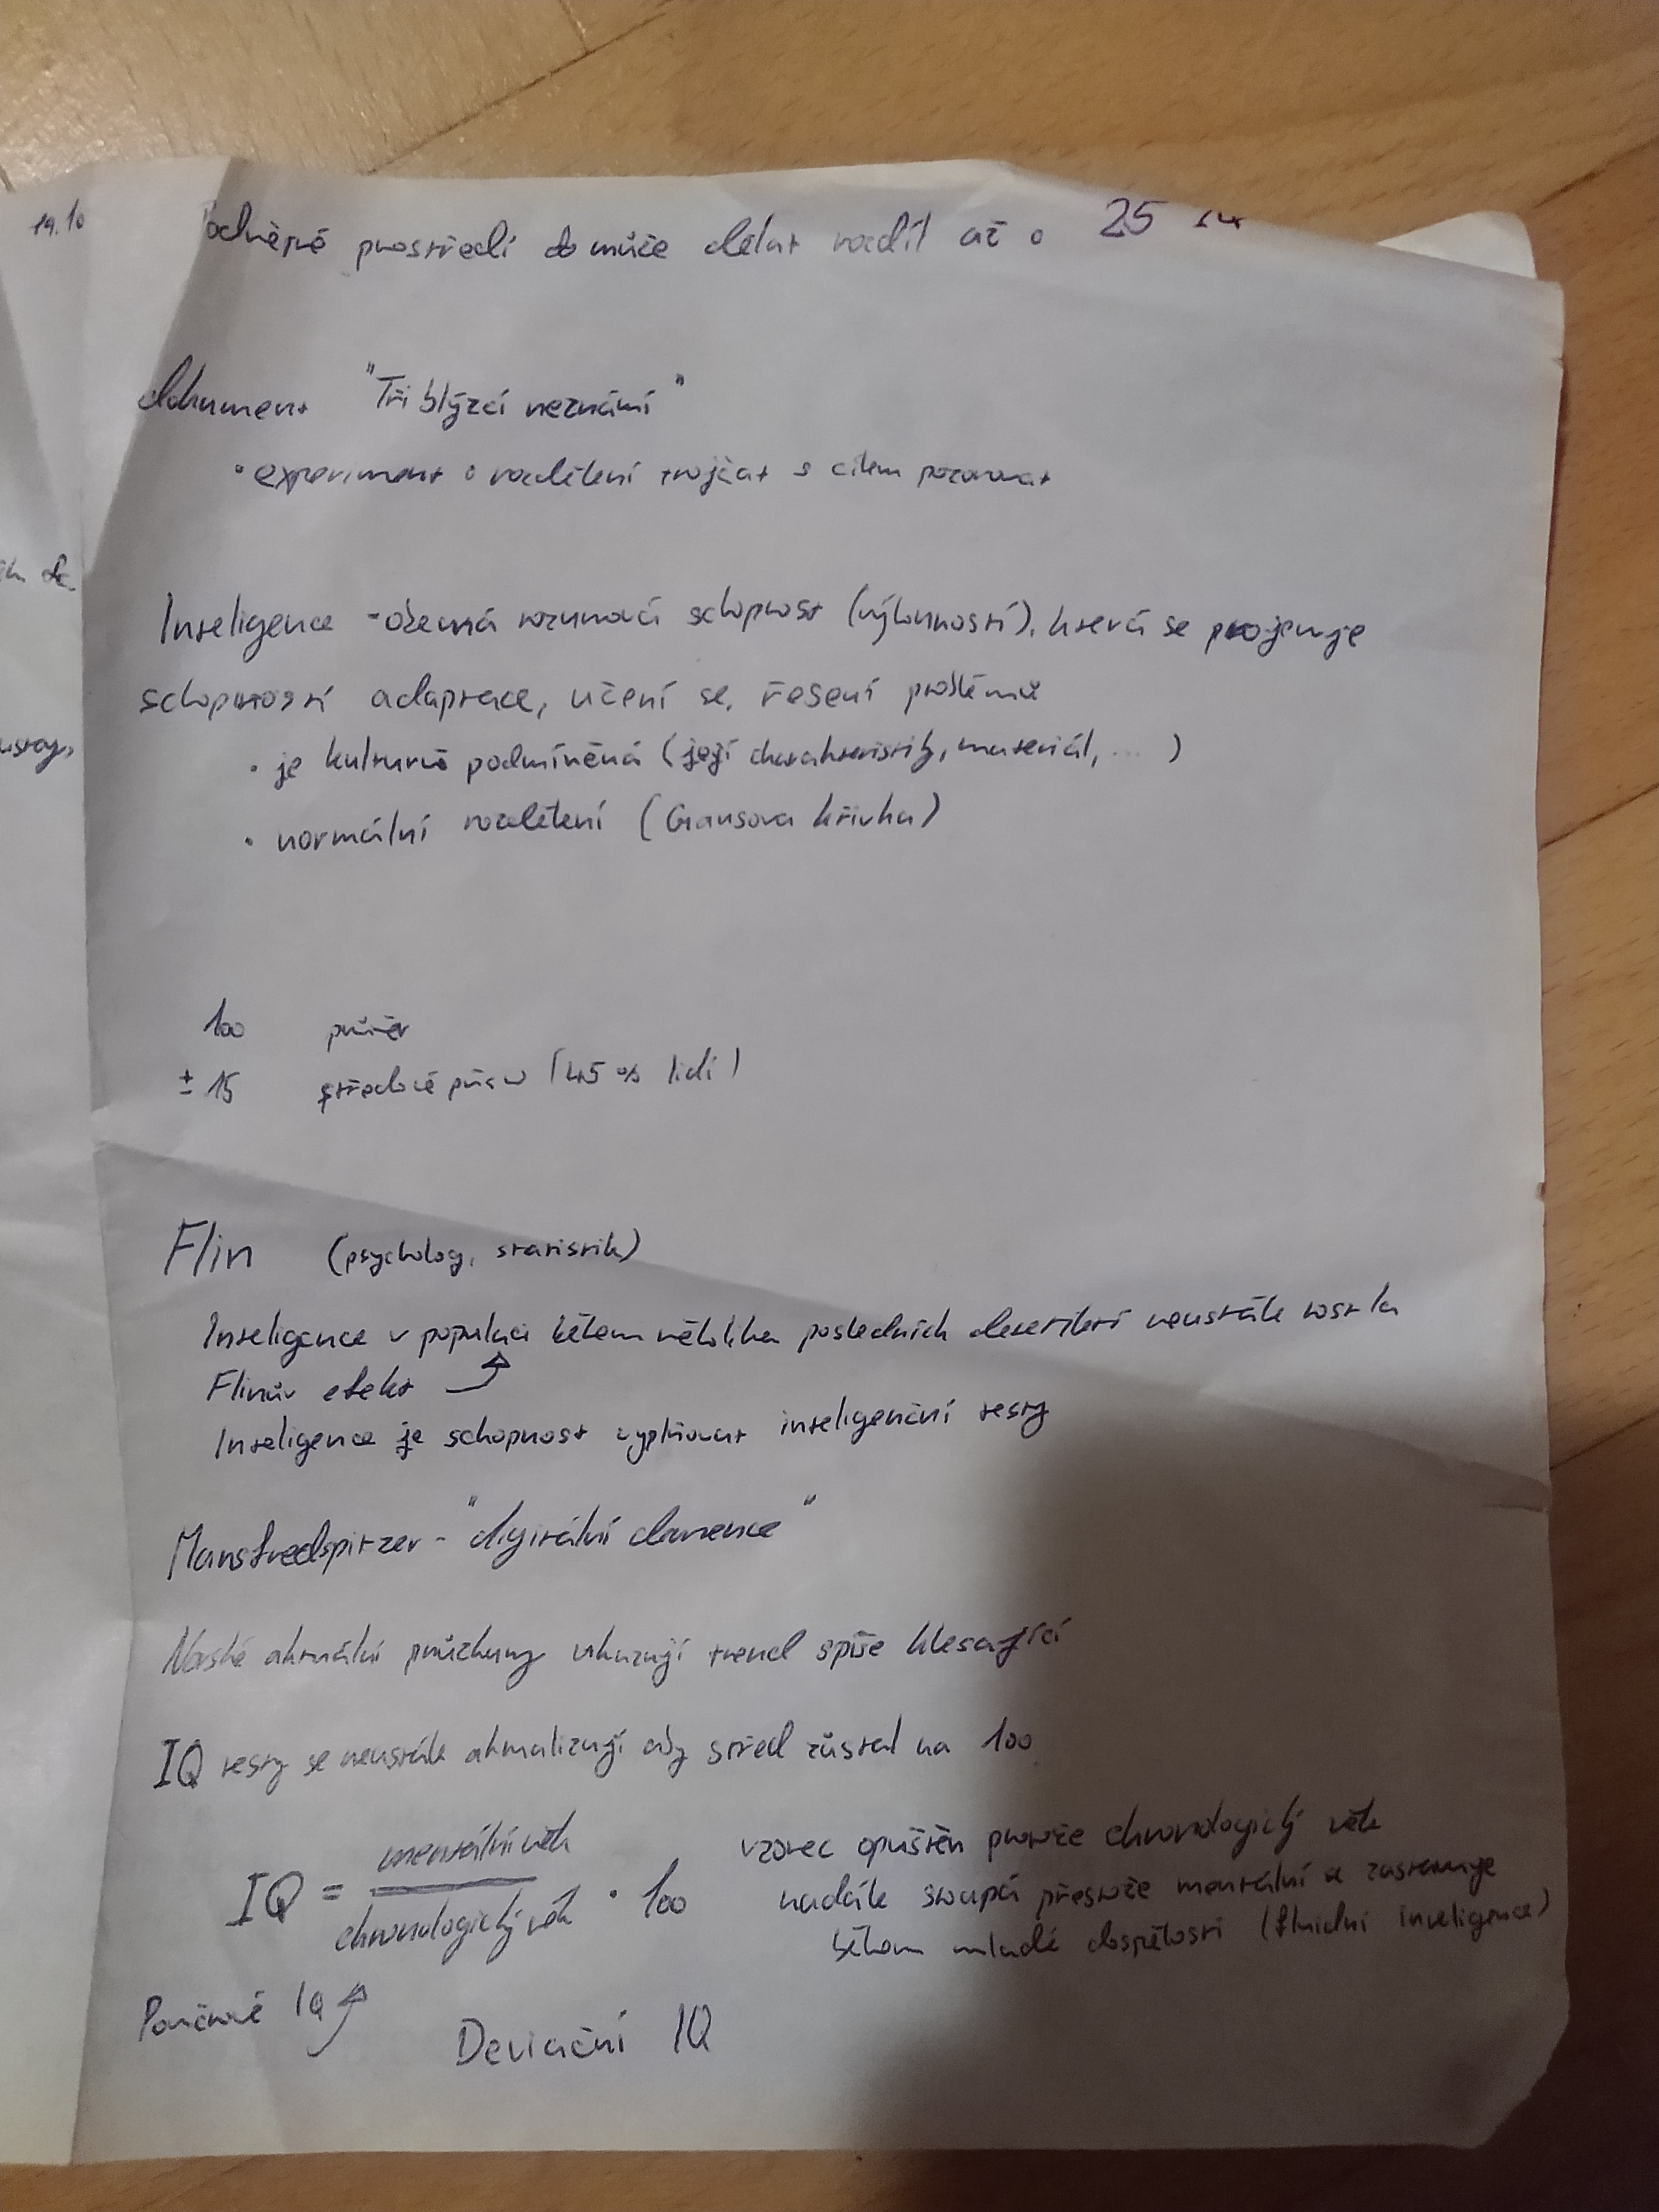 19.10
Podnětné prostředí to může dělat rozdíl až o 25
dokument "Tři blýzcí neznámí"
• experiment o rozdělení trojčat s cílem pozorovat
Inteligence - obecná rozumová schopnost (výkonností), která se projevuje
schopností adaptace, učení se, řešení problémů
• je kulturně podmíněná (její charakteristiky, materiál, ... )
• normální rozdělení (Gausova křivka)
100 průměr
± 15 středové pásmo (45 % lidí)
Flin (psycholog, statistik)
Inteligence v populaci během několika posledních desetiletí neustále rostla
Flinův efekt
Inteligence je schopnost vyplňovat inteligenční testy
Mansfredspitzer - "digitální demence"
aktuální průzkumy ukazují trend spíše klesající
IQ testy se neustále aktualizují aby střed zůstal na 100
IQ = mentální věk / chronologický věk · 100
vzorec opuštěn protože chronologický věk
nadále stoupá přestože mentální se zastavuje
během mladé dospělosti (fluidní inteligence)
Poměrové IQ
Deviační IQ